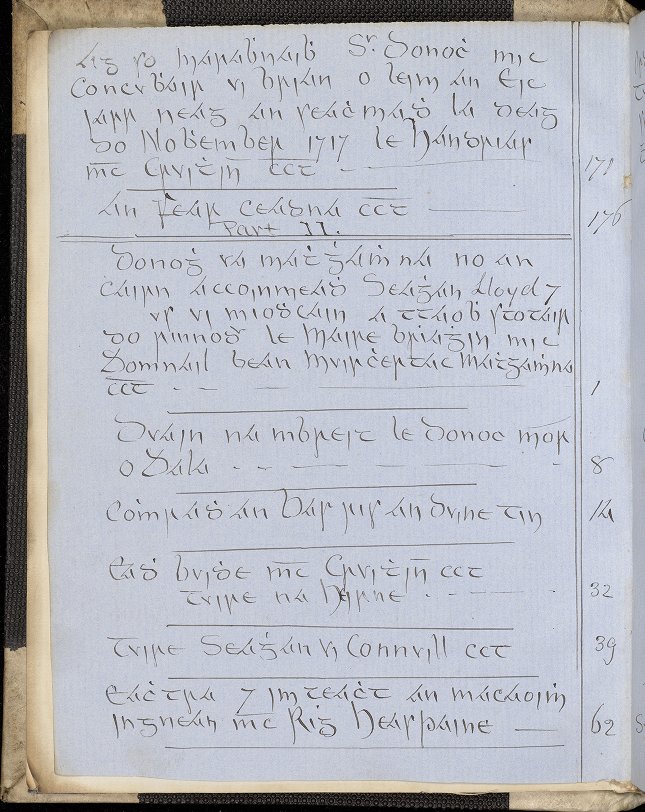 Aig so marabnaib Sr. Donoċ mic
Concubair ui brian o leim an Eic
iarr neag an seaċmaḋ la deag
do Noḃember 1717 le Handrias
mc̅ Cruitin̅ ccṫ 171
An Fear ceadna ccṫ 176
Part II.
Donoġ ua maṫġaṁna no an
cairn accoinmeaḋ Seaġan Lloyd ⁊
ui mioḋcain a ttaoḃ stotair
do rinnoḋ le Maire briaġin mic
Domnail bean Muirċertac Maṫġaṁna
ccṫ 1
Duain na mbreiṫ le Donoc mor
o Dala 8
Coṁraḋ an Bas ris an duine tin 14
Eaḋ buiḋe mc̅ Cruitin̅ ccṫ
tuire na Heirne 32
tuire Seaġan ui Connuill ccṫ 39
Eaċtra ⁊ imṫeaċt an macaoiṁ
ingnean mc̅ Riġ Hearpaine 62